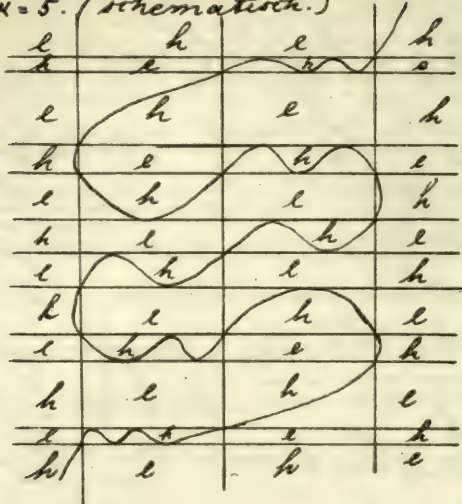 x = 5. (schematisch.)
e h e h
h e h e
e h e h
h e h e
e h e h
h e h e
e h e h
h e h e
e h e h
h e h e
e h e h
h e h e